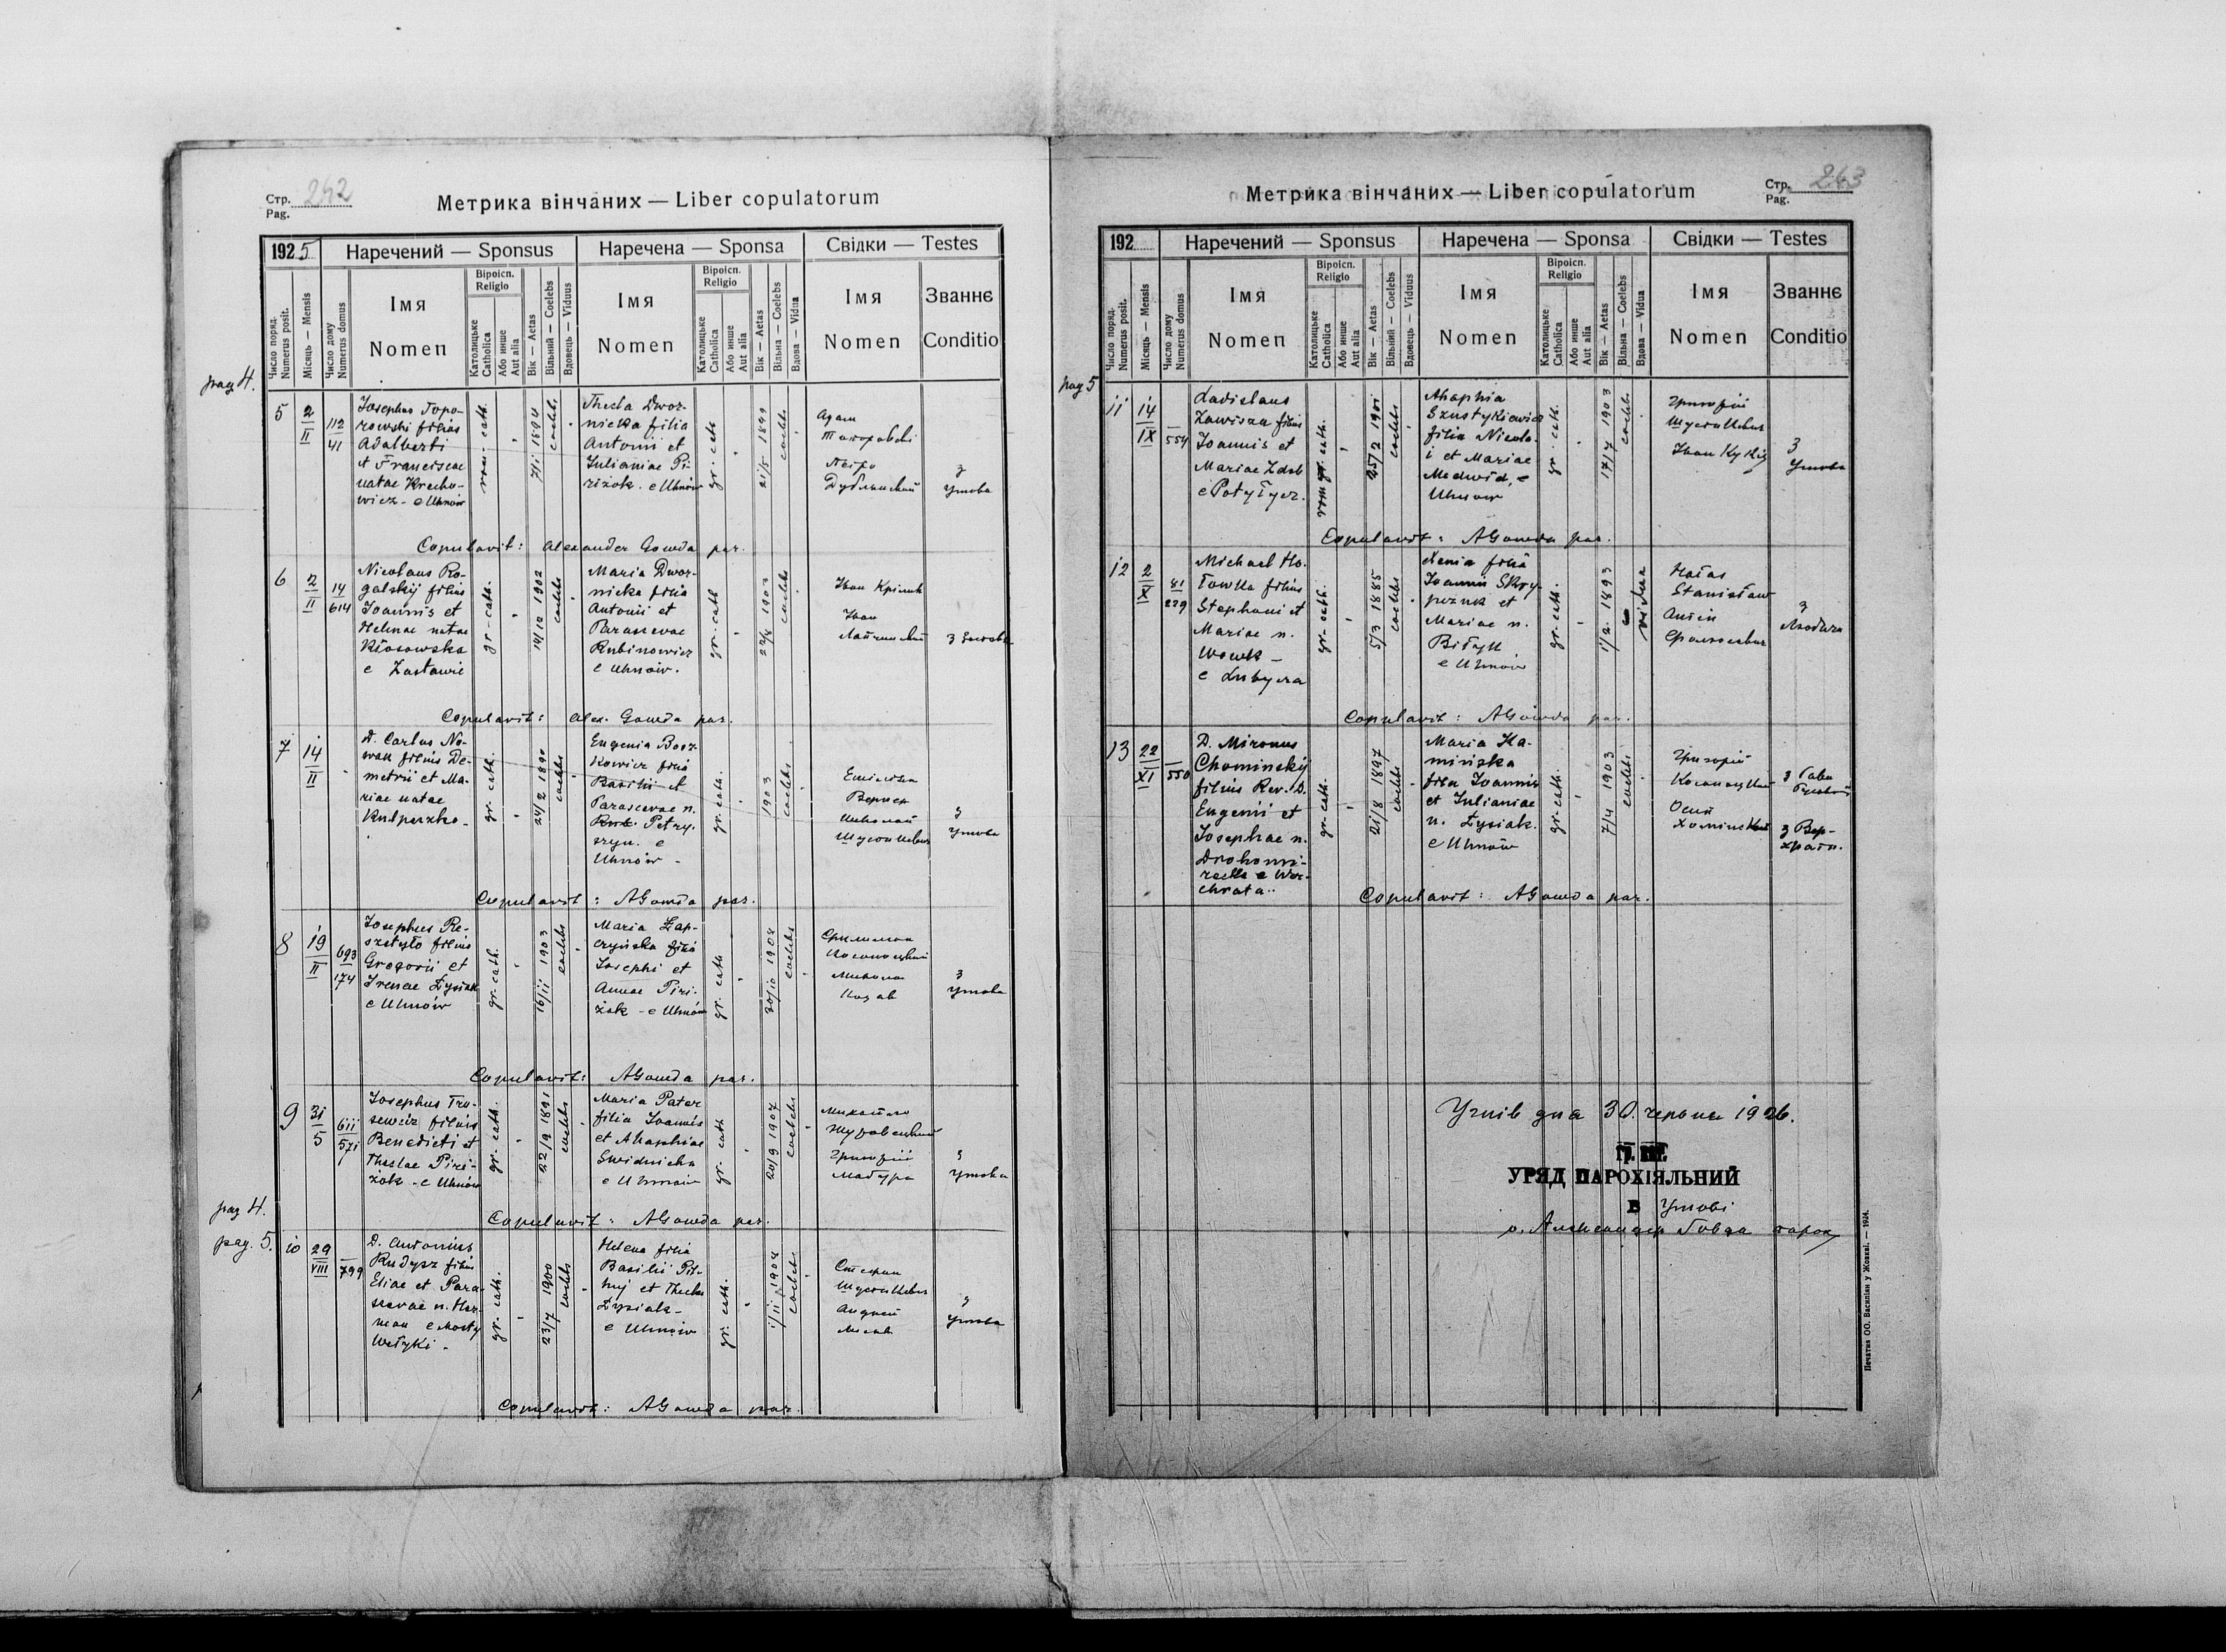 Стр. Pag. 242
Метрика вінчаних — Liber copulatorum
1925
Наречений — Sponsus
Наречена — Sponsa
Свідки — Testes
Число поряд. Numerus posit.
Місяць — Mensis
Число дому Numerus domus
Імя Nomen
Віроісп. Religio
Католицьке Catholica
Або инше Aut alia
Вік — Aetas
Вільний — Coelebs
Вдовець — Viduus
Імя Nomen
Віроісп. Religio
Католицьке Catholica
Або инше Aut alia
Вік — Aetas
Вільна — Coelebs
Вдова — Vidua
Імя Nomen
Званнє Conditio
pag 4.
5
2/II
112/41
Josephus Topo-
rowski filius
Adalberti
et Franciscae
natae Krecho-
wicz - e Uhnów
rom-cath.
7/1 1894
coelebs
Thecla Dwor-
nicka filia
Antonii et
Julianiae Pi-
rizok. e Uhnów
gr-cath
21/5 1899
coelebs
Адам
Топоровскі
Петро
з
Угнова
Copulavit: Alexander Gowda par.
6
2/II
14/614
Nicolaus Ro-
galskij filius
Joannis et
Helenae natae
Kłosowska
e Zastawie
gr-cath.
14/12 1902
coelebs
Maria Dwor-
nicka filia
Antonii et
Parascevae
Rubinowicz
e Uhnów.
gr-cath
1903
coelebs
Іван
Іван
Copulavit: Alex. Gowda par.
7
14/II
D. Carlus No-
wak filius De-
metrii et Ma-
riae natae
Kulpaszko-
gr-cath.
24/2 1890
coelebs
Eugenia Bosz-
kowicz filia
Basilii et
Parascevae n.
Petry-
szyn. e
Uhnów -
gr-cath.
1903
coelebs
Николай
Шустикевич
з
Угнова
Copulavit: AGowda par.
8
19/II
693/174
Josephus Re-
szetyło filius
Gregorii et
Irenae Łysiak
e Uhnów
gr-cath.
16/11 1903
coelebs
Maria Łap-
czyńska filia
Josephi et
Annae Piri-
żok - e Uhnów
gr-cath
30/10 1904
coelebs
Микола
Козак
з
Угнова
Copulavit: AGowda par.
9
31/5
611/571
Josephus Tru-
sewicz filius
Benedicti et
Theclae Piri-
żok - e Uhnów
gr-cath.
22/9 1891
coelebs
Maria Pater
filia Joannis
et Ahaphiae
Swidnicka
e Uhnów
gr-cath
20/9 1907
coelebs
Михайло
Григорій
Мацура
з
Угнова
Copulavit: AGowda par.
pag 4.
pag. 5.
10
29/VIII
799
D. Antonius
Rudysz filius
Eliae et Para-
scevae n. Her-
man e Mosty
Wełyki -
gr-cath.
23/7 1900
coelebs
Helena filia
Basilii Pił-
nij et Theclae
Łysiak -
e Uhnów
gr-cath.
1/11 1904
coelebs
Стефан
Шустикевич
Андрей
з
Угнова
Copulavit: AGowda par.
Стр. Pag. 243
Метрика вінчаних — Liber copulatorum
192
Наречений — Sponsus
Наречена — Sponsa
Свідки — Testes
Число поряд. Numerus posit.
Місяць — Mensis
Число дому Numerus domus
Імя Nomen
Віроісп. Religio
Католицьке Catholica
Або инше Aut alia
Вік — Aetas
Вільний — Coelebs
Вдовець — Viduus
Імя Nomen
Віроісп. Religio
Католицьке Catholica
Або инше Aut alia
Вік — Aetas
Вільна — Coelebs
Вдова — Vidua
Імя Nomen
Званнє Conditio
pag 5
11
14/IX
554
Ladislaus
Zawisza filius
Joannis et
Mariae Zdeb
e Potyłycz.
rom gr. cath.
25/2 1901
coelebs
Ahaphia
Szustykiewicz
filia Nicola-
i et Mariae
Medwid, e
Uhnów
gr-cath.
17/7 1903
coelebs
Григорій
Шустикевич
Іван
з
Угнова
Copulavit: AGowda par.
12
2/XI
81/229
Michael Ho-
łowka filius
Stephani et
Mariae n.
Wowk -
e Lubycza
gr-cath.
5/3 1885
coelebs
Xenia filia
Joannis Skry-
pczuk et
Mariae n.
Biłyk
e Uhnów
gr-cath.
1/2. 1893
vidua
Hałas
Stanisław
Антін
з
Copulavit: AGowda par.
13
22/XI
550
D. Mironus
Chominskij
filius Rev. D.
Eugenii et
Josephae n.
Drohomi-
recka e Wer-
chrata..
gr-cath.
21/8 1897
coelebs
Maria Ka-
mińska
filia Joannis
et Julianiae
n. Łysiak.
e Uhnów
gr-cath.
7/4 1903
coelebs
Григорій
з Рави
Руської
Осип
Хомінский
з Вер-
храти.
Copulavit: AGowda par.
Угнів дня 30. червня 1926.
УРЯД ПАРОХІЯЛЬНИЙ
В Угнові
о. Александер Говда парох
Печатня ОО. Василіян у Жовкві. — 1924.